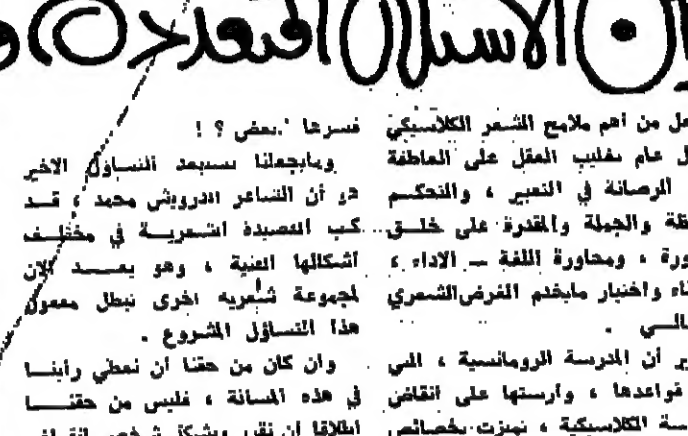 ان الاسئلة المتعددة
عل من أهم ملامح الشعر الكلاسيكي
ل عام تغليب العقل على العاطفة
الرصانة في التعبير ، والتحكم
ظة والجملة والقدرة على خلق
ورة ، ومحاورة اللغة ــ الاداء ،
اء واختيار مايخدم الغرض الشعري
ير أن المدرسة الرومانسية ، التي
قواعدها ، وأرستها على انقاض
سة الكلاسيكية ، تميزت بخصائص
فسرها بعض ؟ !
ومايجعلنا نستبعد التساؤل الاخير
هو أن الشاعر الدرويش محمد ، قد
كتب القصيدة الشعرية في مختلف
أشكالها الفنية ، وهو يعد الان
لمجموعة شعرية اخرى تبطل مفعول
هذا التساؤل المشروع .
وان كان من حقنا أن نعطي رأينا
في هذه المسألة ، فليس من حقنا
اطلاقا أن نقرر وبشكل